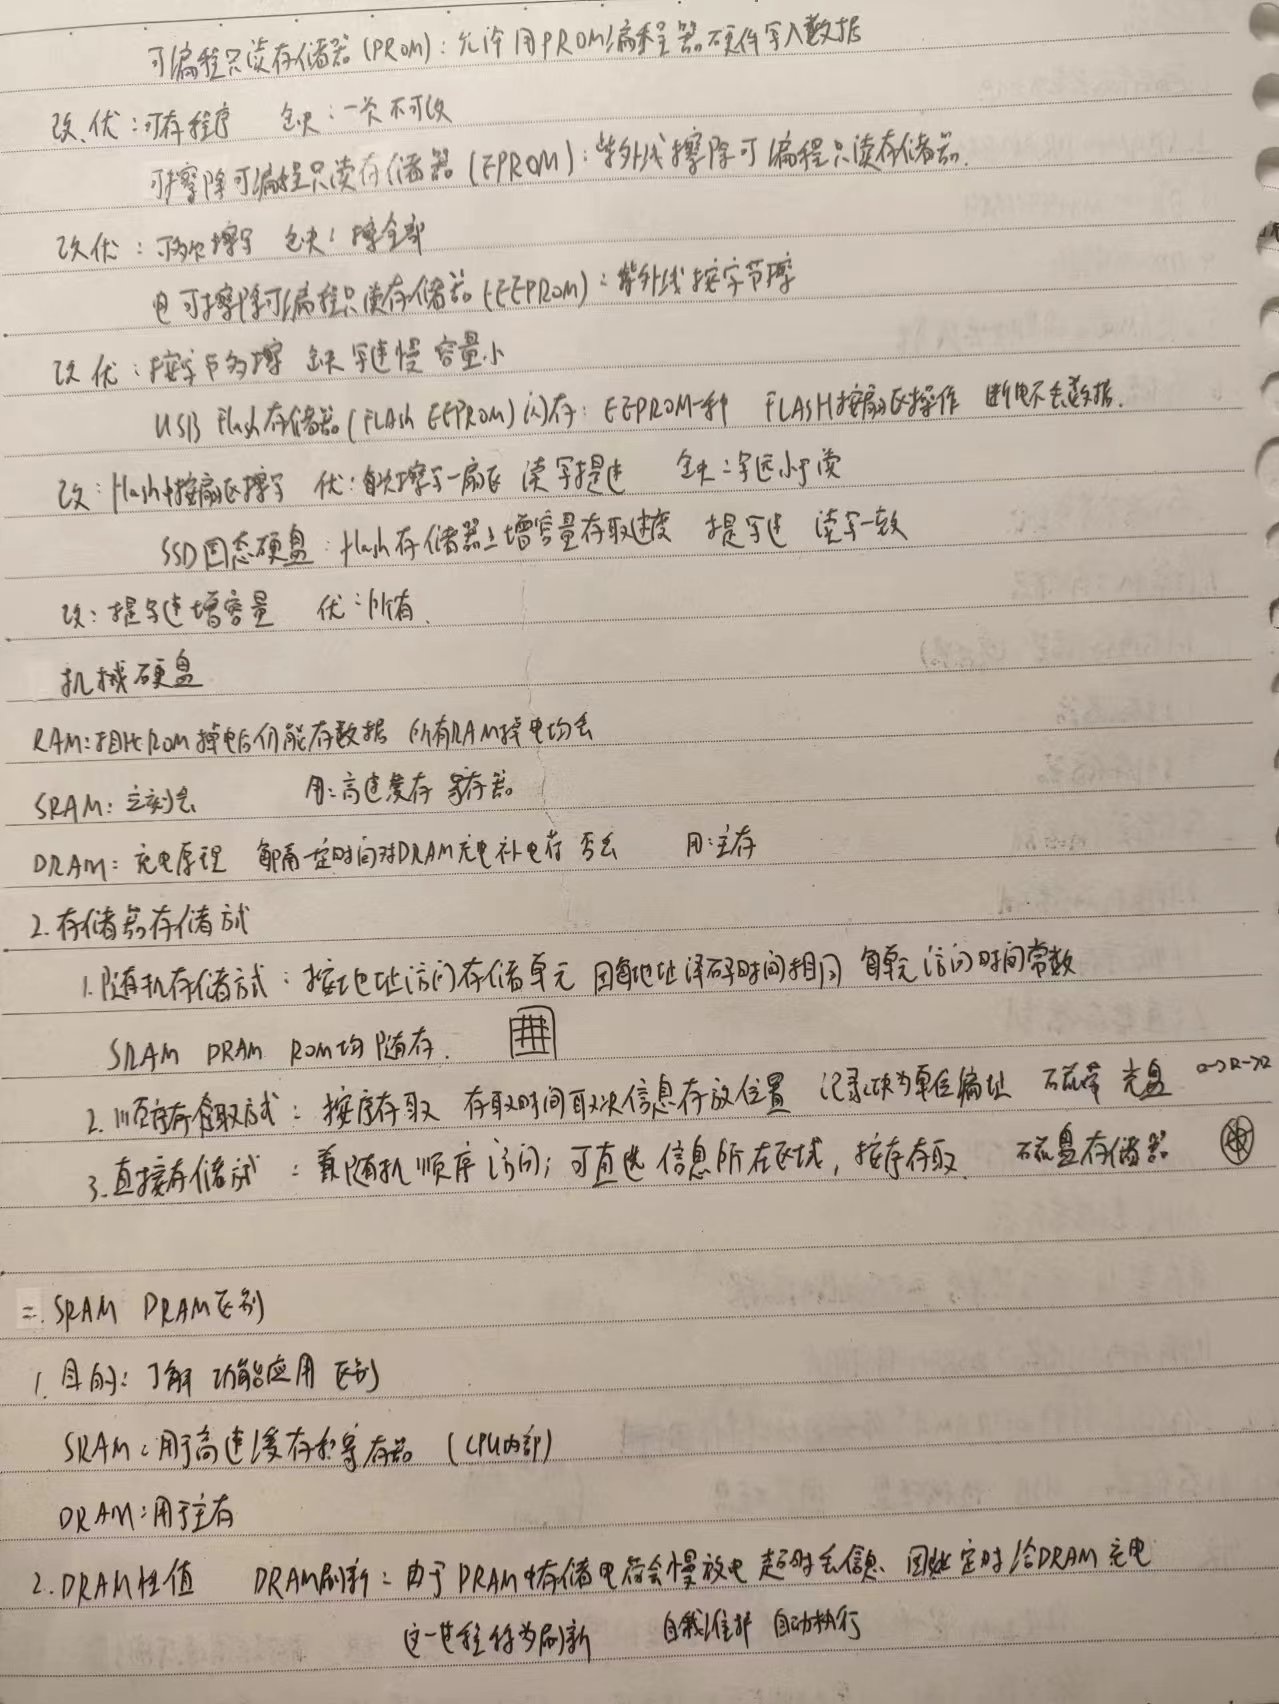 可编程只读存储器(PROM)：允许用PROM编程器硬件写入数据
改、优：可存程序 缺：一次不可改
可擦除可编程只读存储器(EPROM)：紫外线擦除可编程只读存储器.
改优：可多次擦写 缺：擦全部
电可擦除可编程只读存储器(EEPROM)：紫外线按字节擦
改优：按字节多擦 缺 写速慢 容量小
USB Flash存储器(FLASH EEPROM)闪存：EEPROM一种 FLASH按扇区操作 断电不丢数据.
改：Flash中按扇区擦写 优：每次擦写一扇区 读写提速 缺：写远小于读
SSD固态硬盘：Flash存储器上增容量存取速度 提写速 读写一致
改：提写速增容量 优：所有.
机械硬盘
RAM：相比ROM掉电后仍能存数据 所有RAM掉电均丢
SRAM：立刻丢 用：高速缓存 寄存器
DRAM：充电原理 每隔一定时间对DRAM充电补电荷 否丢 用：主存
2.存储器存储方式
1.随机存储方式：按地址访问存储单元 因每地址译码时间相同 每单元访问时间常数
SRAM DRAM ROM均随存.
2.顺序存取方式：按序存取 存取时间取决信息存放位置 记录块为单位编址 磁带 光盘
3.直接存储方式：兼随机顺序访问；可直选信息所在区域，按序存取. 磁盘存储器
二.SRAM DRAM区别
1.目的：了解 功能应用 区别
SRAM：用于高速缓存和寄存器 (CPU内部)
DRAM：用于主存
2.DRAM性值 DRAM刷新：由于DRAM中存储电荷会慢放电 超时丢信息. 因此定时给DRAM充电
这一过程称为刷新 自我维护 自动执行